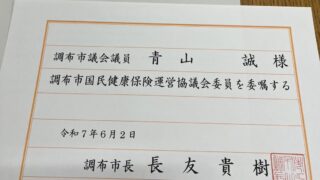 調布市議会議員 青山 誠 様
調布市国民健康保険運営協議会委員を委嘱する
令和7年6月2日
調布市長 長友貴樹